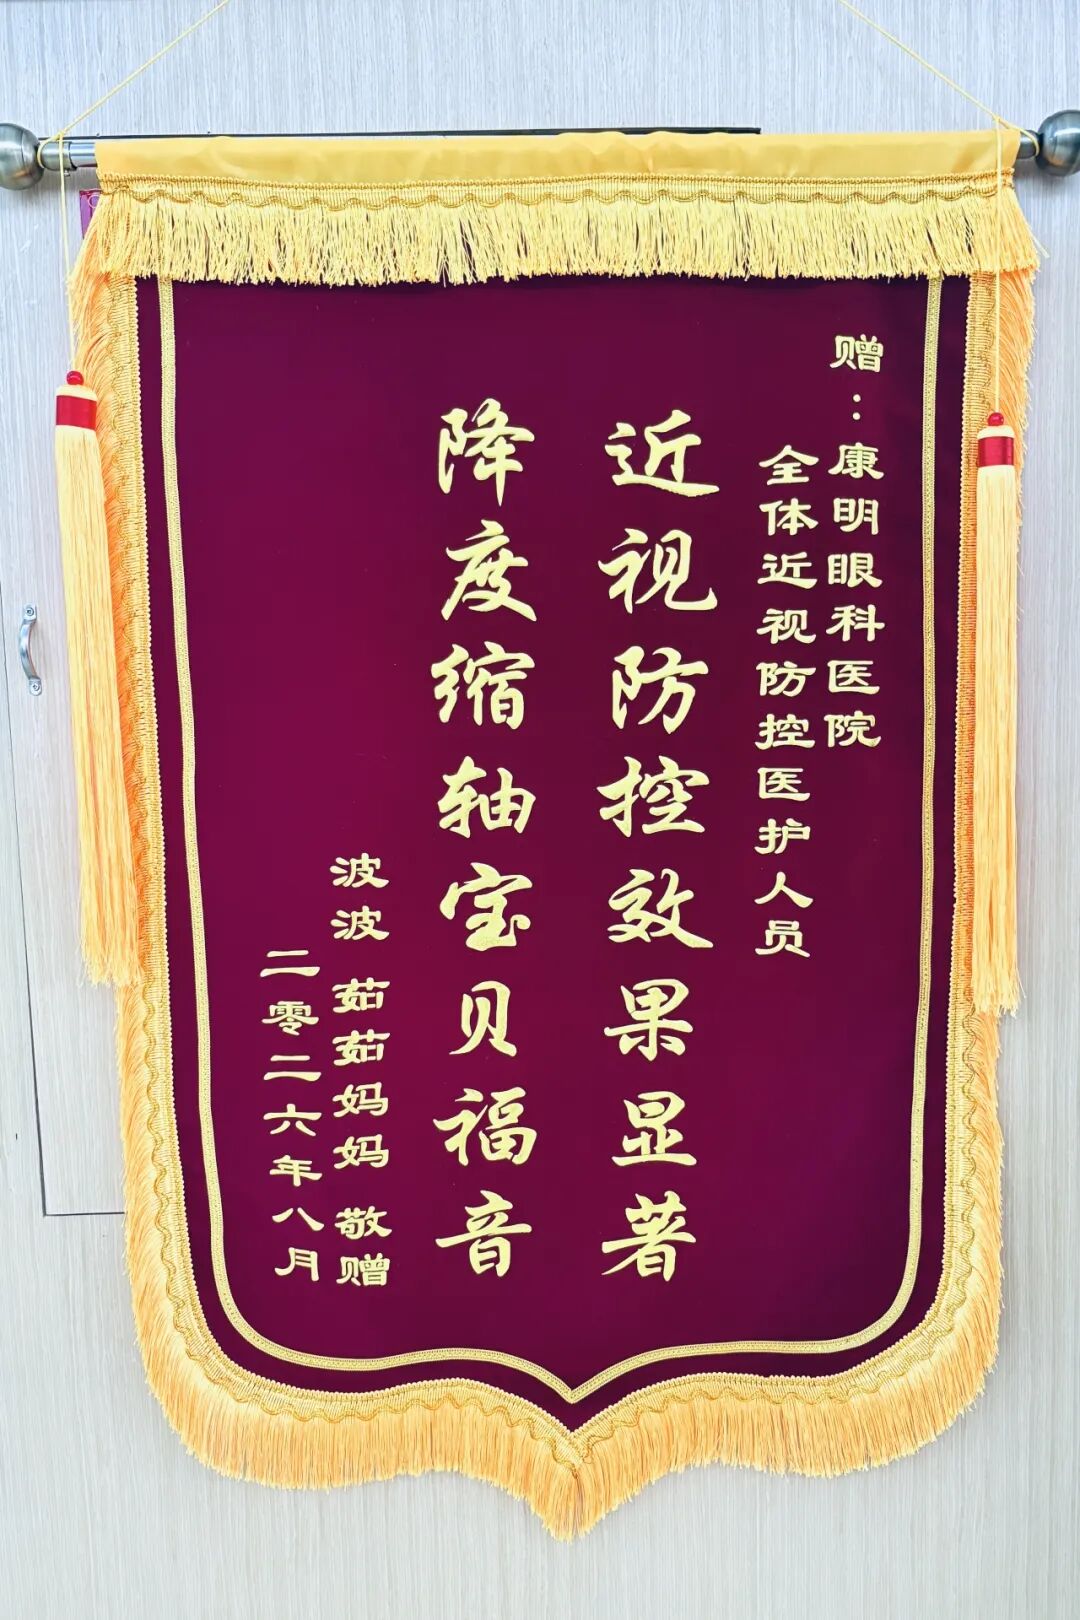 赠：康明眼科医院
全体近视防控医护人员
近视防控效果显著
降度缩轴宝贝福音
波波 茹茹妈妈 敬赠
二零二六年八月